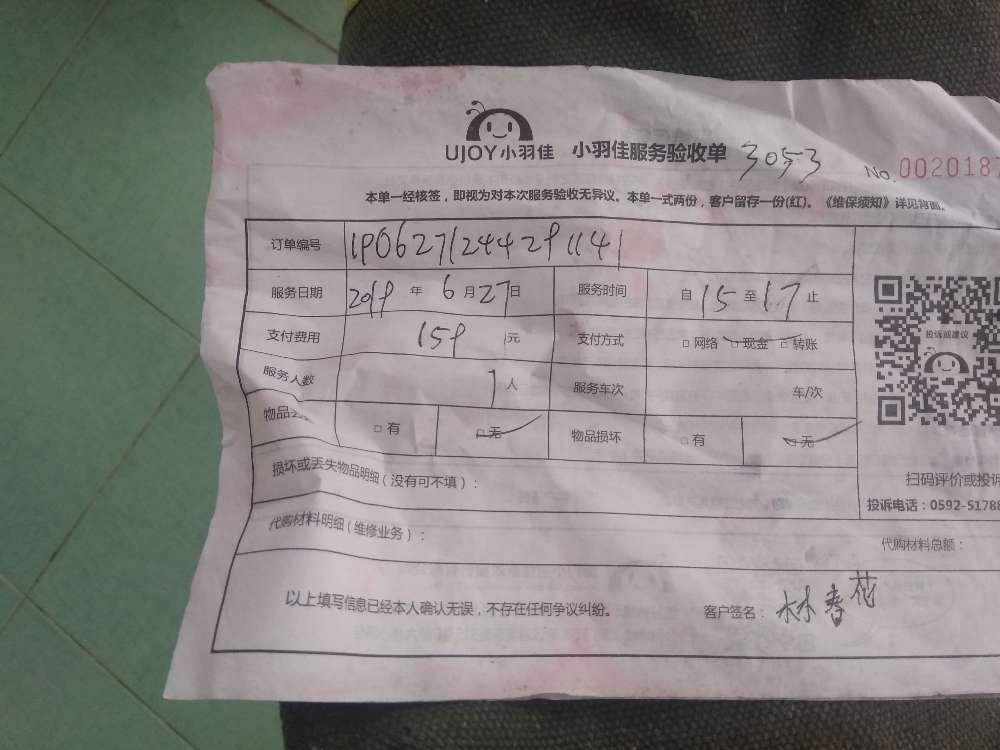 UJOY小羽佳 小羽佳服务验收单 3053 No. 0020187
本单一经核签，即视为对本次服务验收无异议。本单一式两份，客户留存一份(红)。《维保须知》详见背面。
订单编号 1906271244291141
服务日期 2019 年 6 月 27 日 服务时间 自 15 至 17 止
支付费用 159 元 支付方式 □ 网络 □ 现金 □ 转账
服务人数 1 人 服务车次 车/次
物品 □ 有 □ 无 物品损坏 □ 有 □ 无
损坏或丢失物品明细（没有可不填）：
代购材料明细（维修业务）： 代购材料总额：
以上填写信息已经本人确认无误，不存在任何争议纠纷。 客户签名： 林春花
投诉或建议
扫码评价或投诉
投诉电话：0592-5178